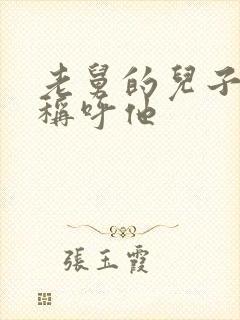 老舅的兒子
稱呼他
張玉霞